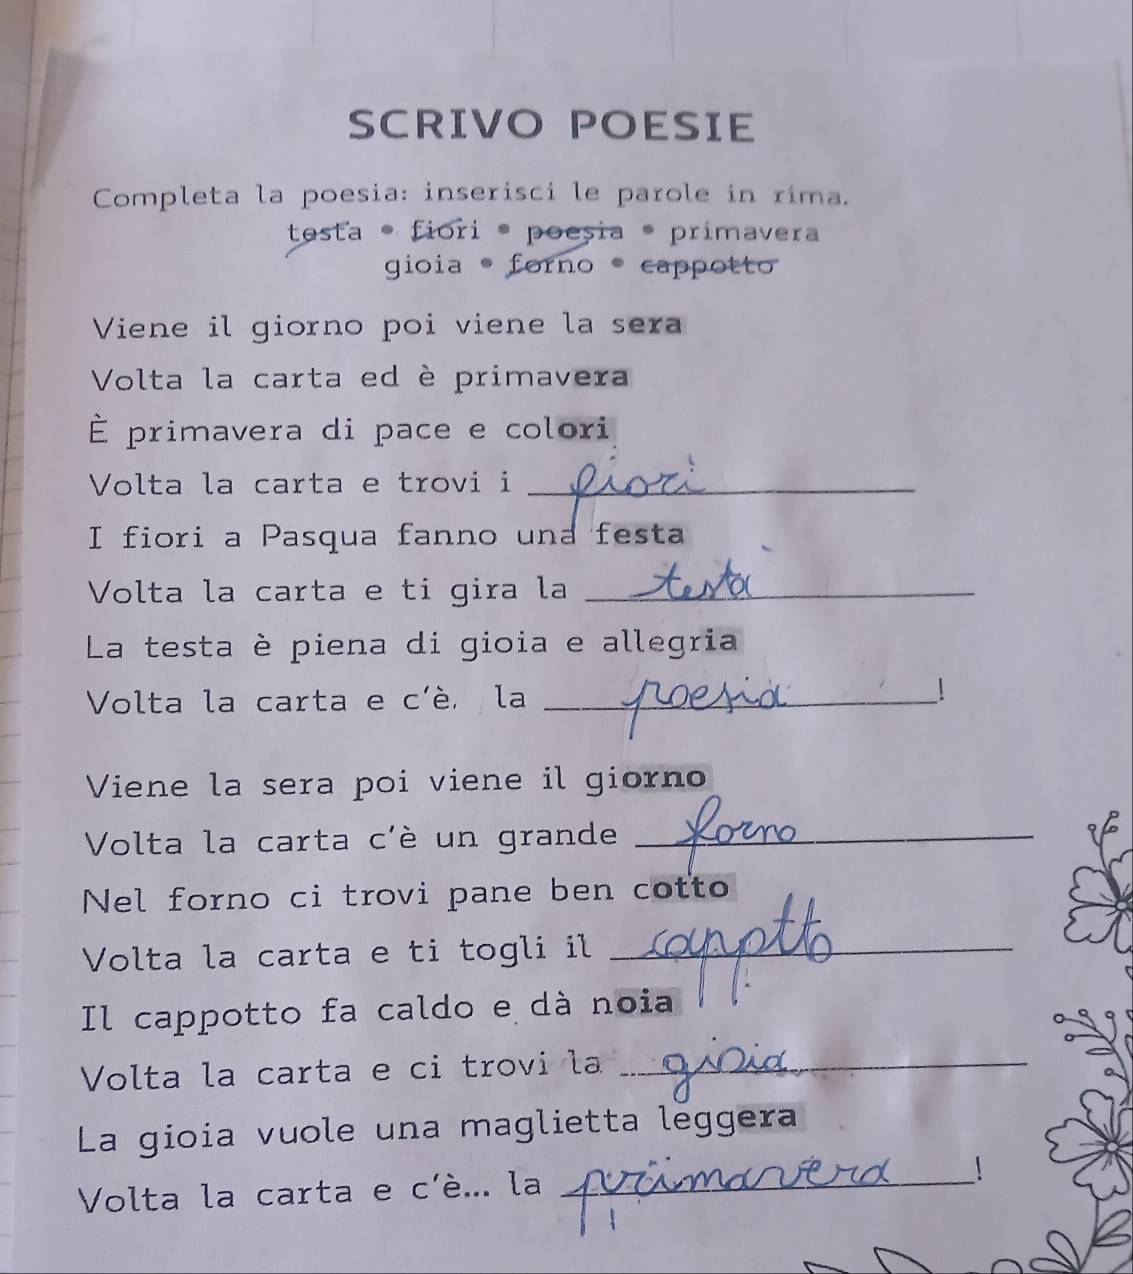 SCRIVO POESIE
Completa la poesia: inserisci le parole in rima.
testa • fiori • poesia • primavera
gioia • forno • cappotto
Viene il giorno poi viene la sera
Volta la carta ed è primavera
È primavera di pace e colori
Volta la carta e trovi i fiori
I fiori a Pasqua fanno una festa
Volta la carta e ti gira la testa
La testa è piena di gioia e allegria
Volta la carta e c'è, la poesia!
Viene la sera poi viene il giorno
Volta la carta c'è un grande forno
Nel forno ci trovi pane ben cotto
Volta la carta e ti togli il cappotto
Il cappotto fa caldo e dà noia
Volta la carta e ci trovi la gioia
La gioia vuole una maglietta leggera
Volta la carta e c'è... la primavera!